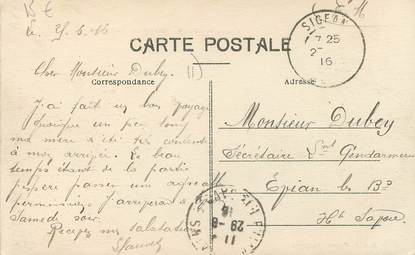 SIGEAN
7 25
2
16
CARTE POSTALE
Correspondance
Adresse
Cher Monsieur Dubey.
J'ai fait un bon voyage
quoique un peu long
ma mère a été très contente
à mon arrivée. Le beau
temps étant de la partie
j'espère passer un agréable
J'arriverai
Samedi soir.
Recevez mes salutations
Monsieur Dubey
Secrétaire Gendarmerie
Evian les Bs
Hte Savoie
11
29-8